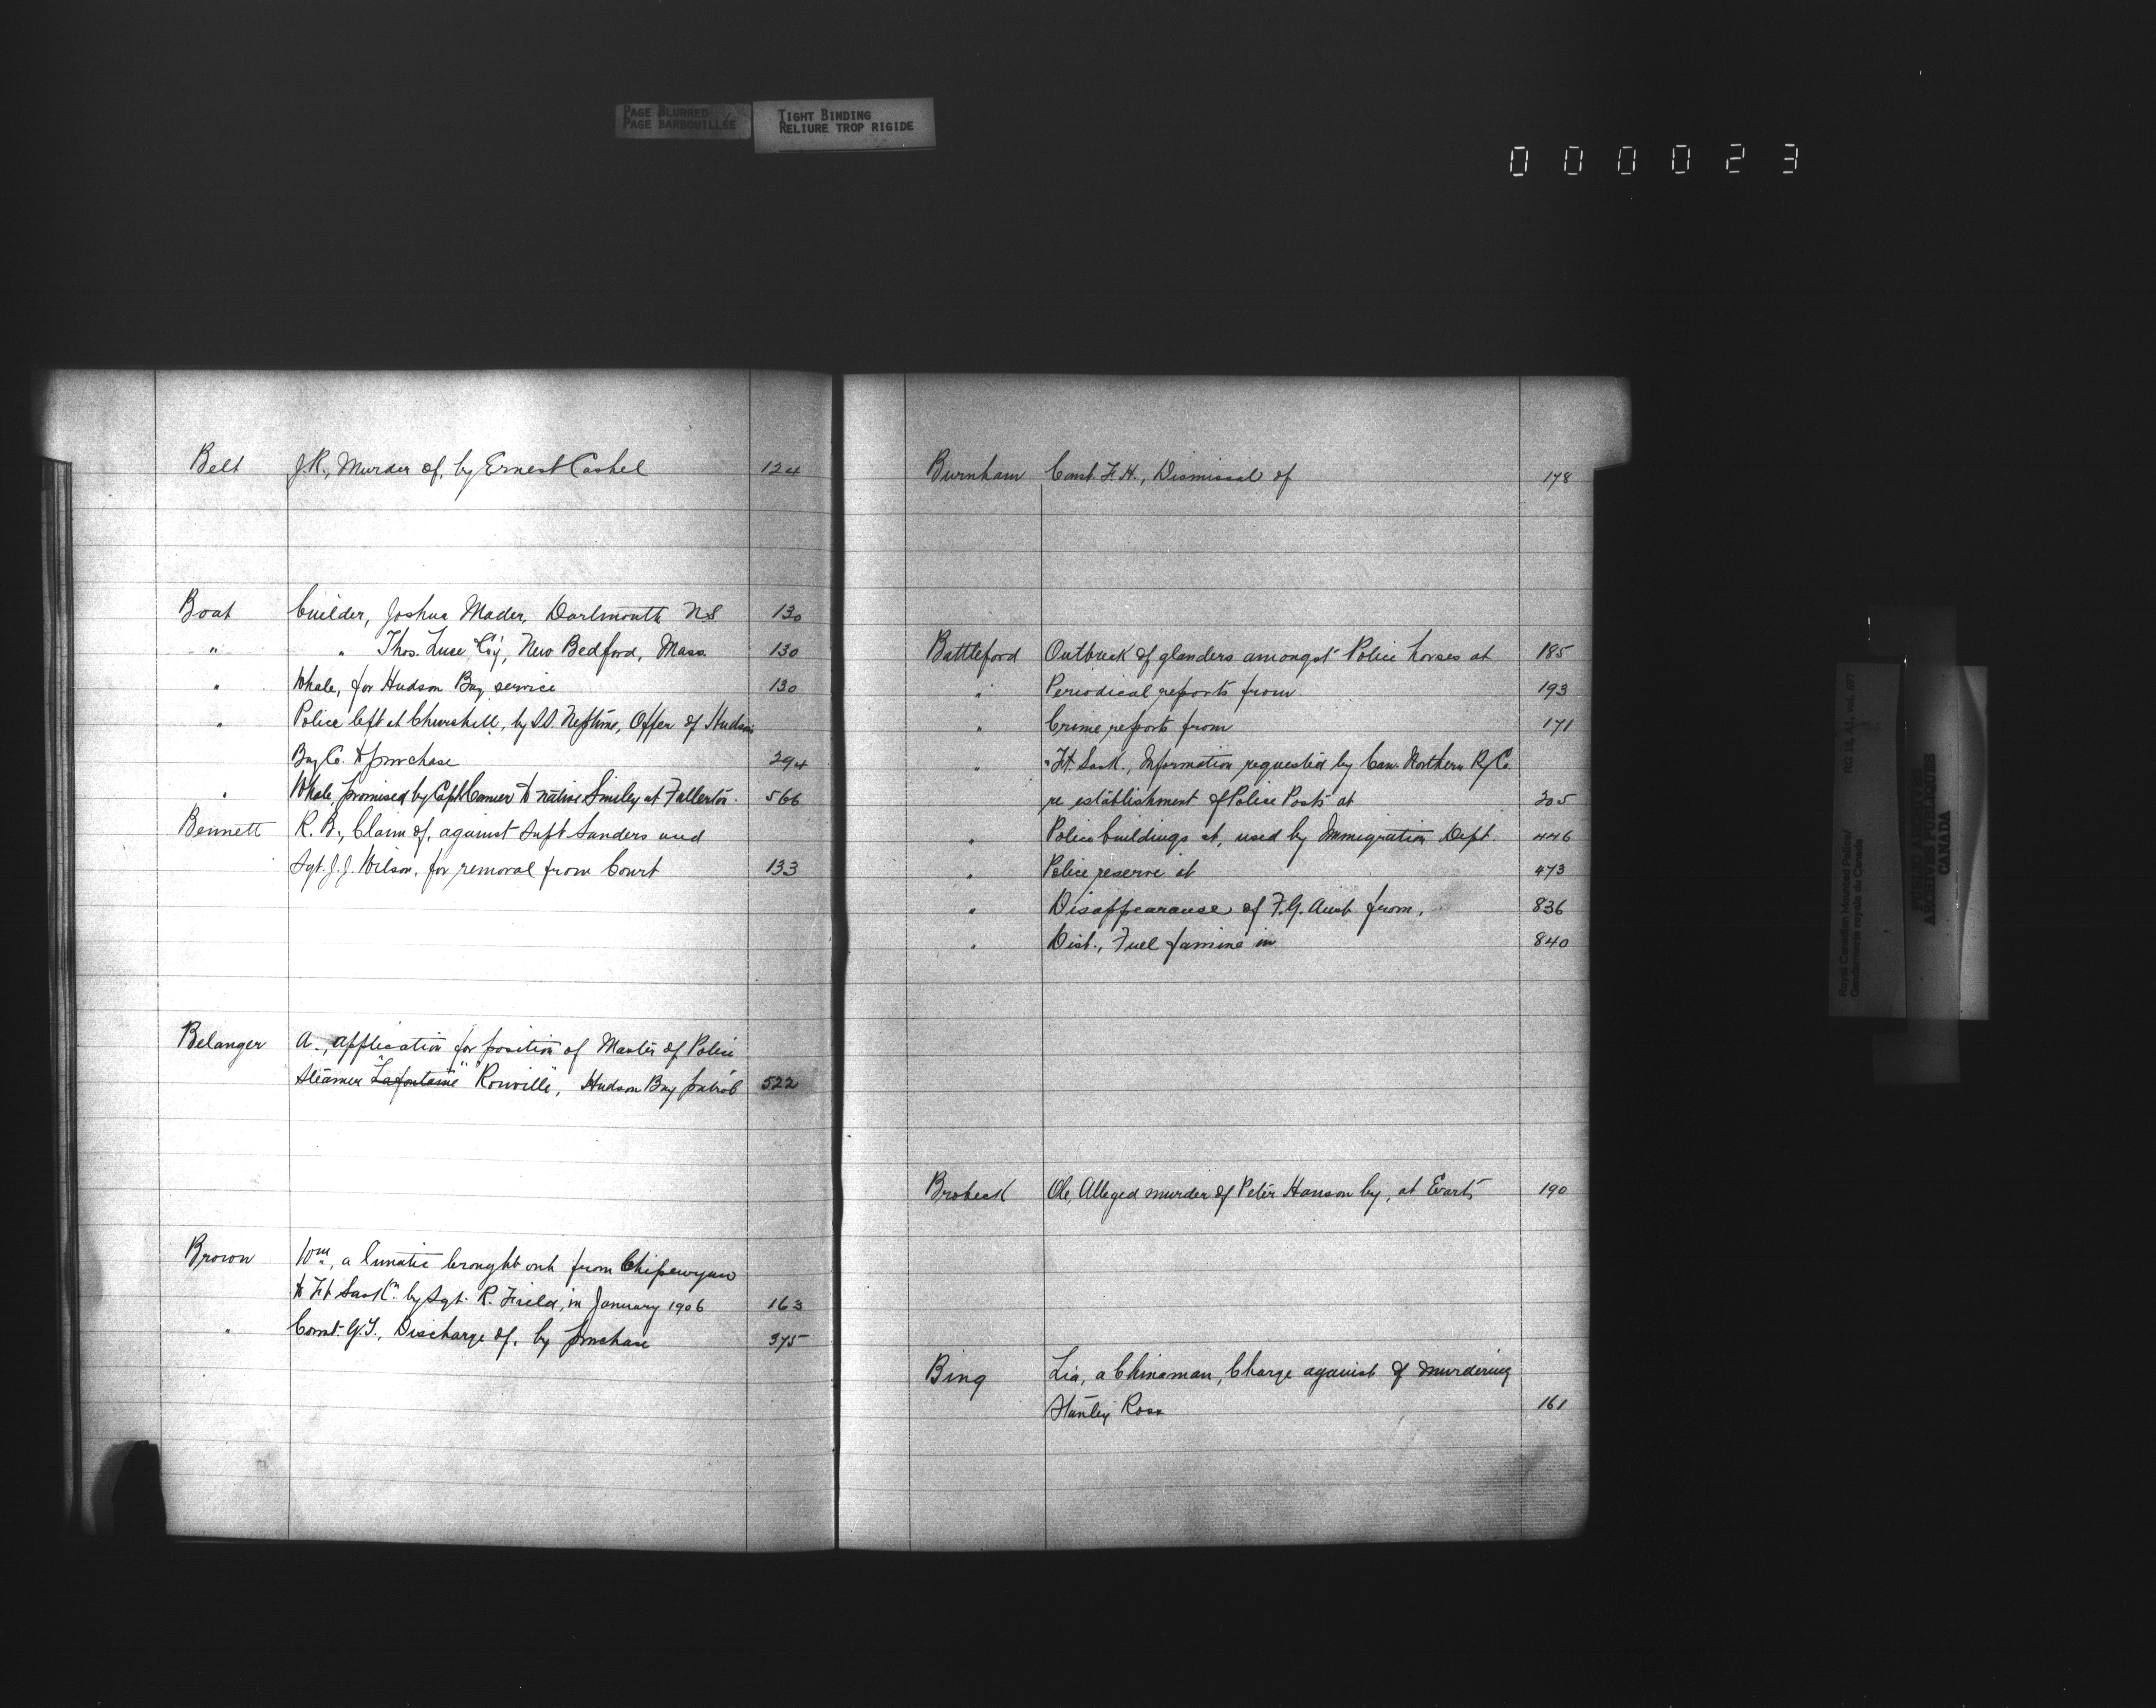 PAGE BLURRED
PAGE BARBOUILLÉE
TIGHT BINDING
RELIURE TROP RIGIDE
000023
Belt J.R., Murder of, by Ernest Cashel 124
Boat builder, Joshua Mader, Dartmouth N.S 130
" " Thos. Luce & Coy, New Bedford, Mass. 130
" Whale, for Hudson Bay service 130
" Police left at Churchill, by S.S. Neptune, Offer of Hudson's
Bay Co. to purchase 294
" Whale, promised by Capt Comer to native Smiley at Fullerton. 566
Bennett R. B., Claim of, against Supt Sanders and
Sgt. J. J. Wilson, for removal from Court 133
Belanger A., application for position of Master of Police
Steamer "Lafontaine" "Rouville", Hudson Bay patrol 522
Brown Wm, a lunatic brought out from Chipewyan
to Ft Saskn. by Sgt. R. Field, in January 1906 163
" Const. G.T., Discharge of, by purchase 375
Burnham Const. F. H., Dismissal of 178
Battleford Outbreak of glanders amongst Police horses at 185
" Periodical reports from 193
" Crime reports from 171
" " Ft. Sask., Information requested by Can. Northern Ry Co.
re establishment of Police Posts at 305
" Police buildings at, used by Immigration Dept. 446
" Police reserve at 473
" Disappearance of F.G. from, 836
" Dist., Fuel famine in 840
Brobeck Ole, Alleged murder of Peter Hanson by, at Evarts 190
Bing Lia, a Chinaman, Charge against of murdering
Stanley Ross 161
Royal Canadian Mounted Police/
Gendarmerie royale du Canada
RG 18, A-1, vol. 697
PUBLIC ARCHIVES
ARCHIVES PUBLIQUES
CANADA